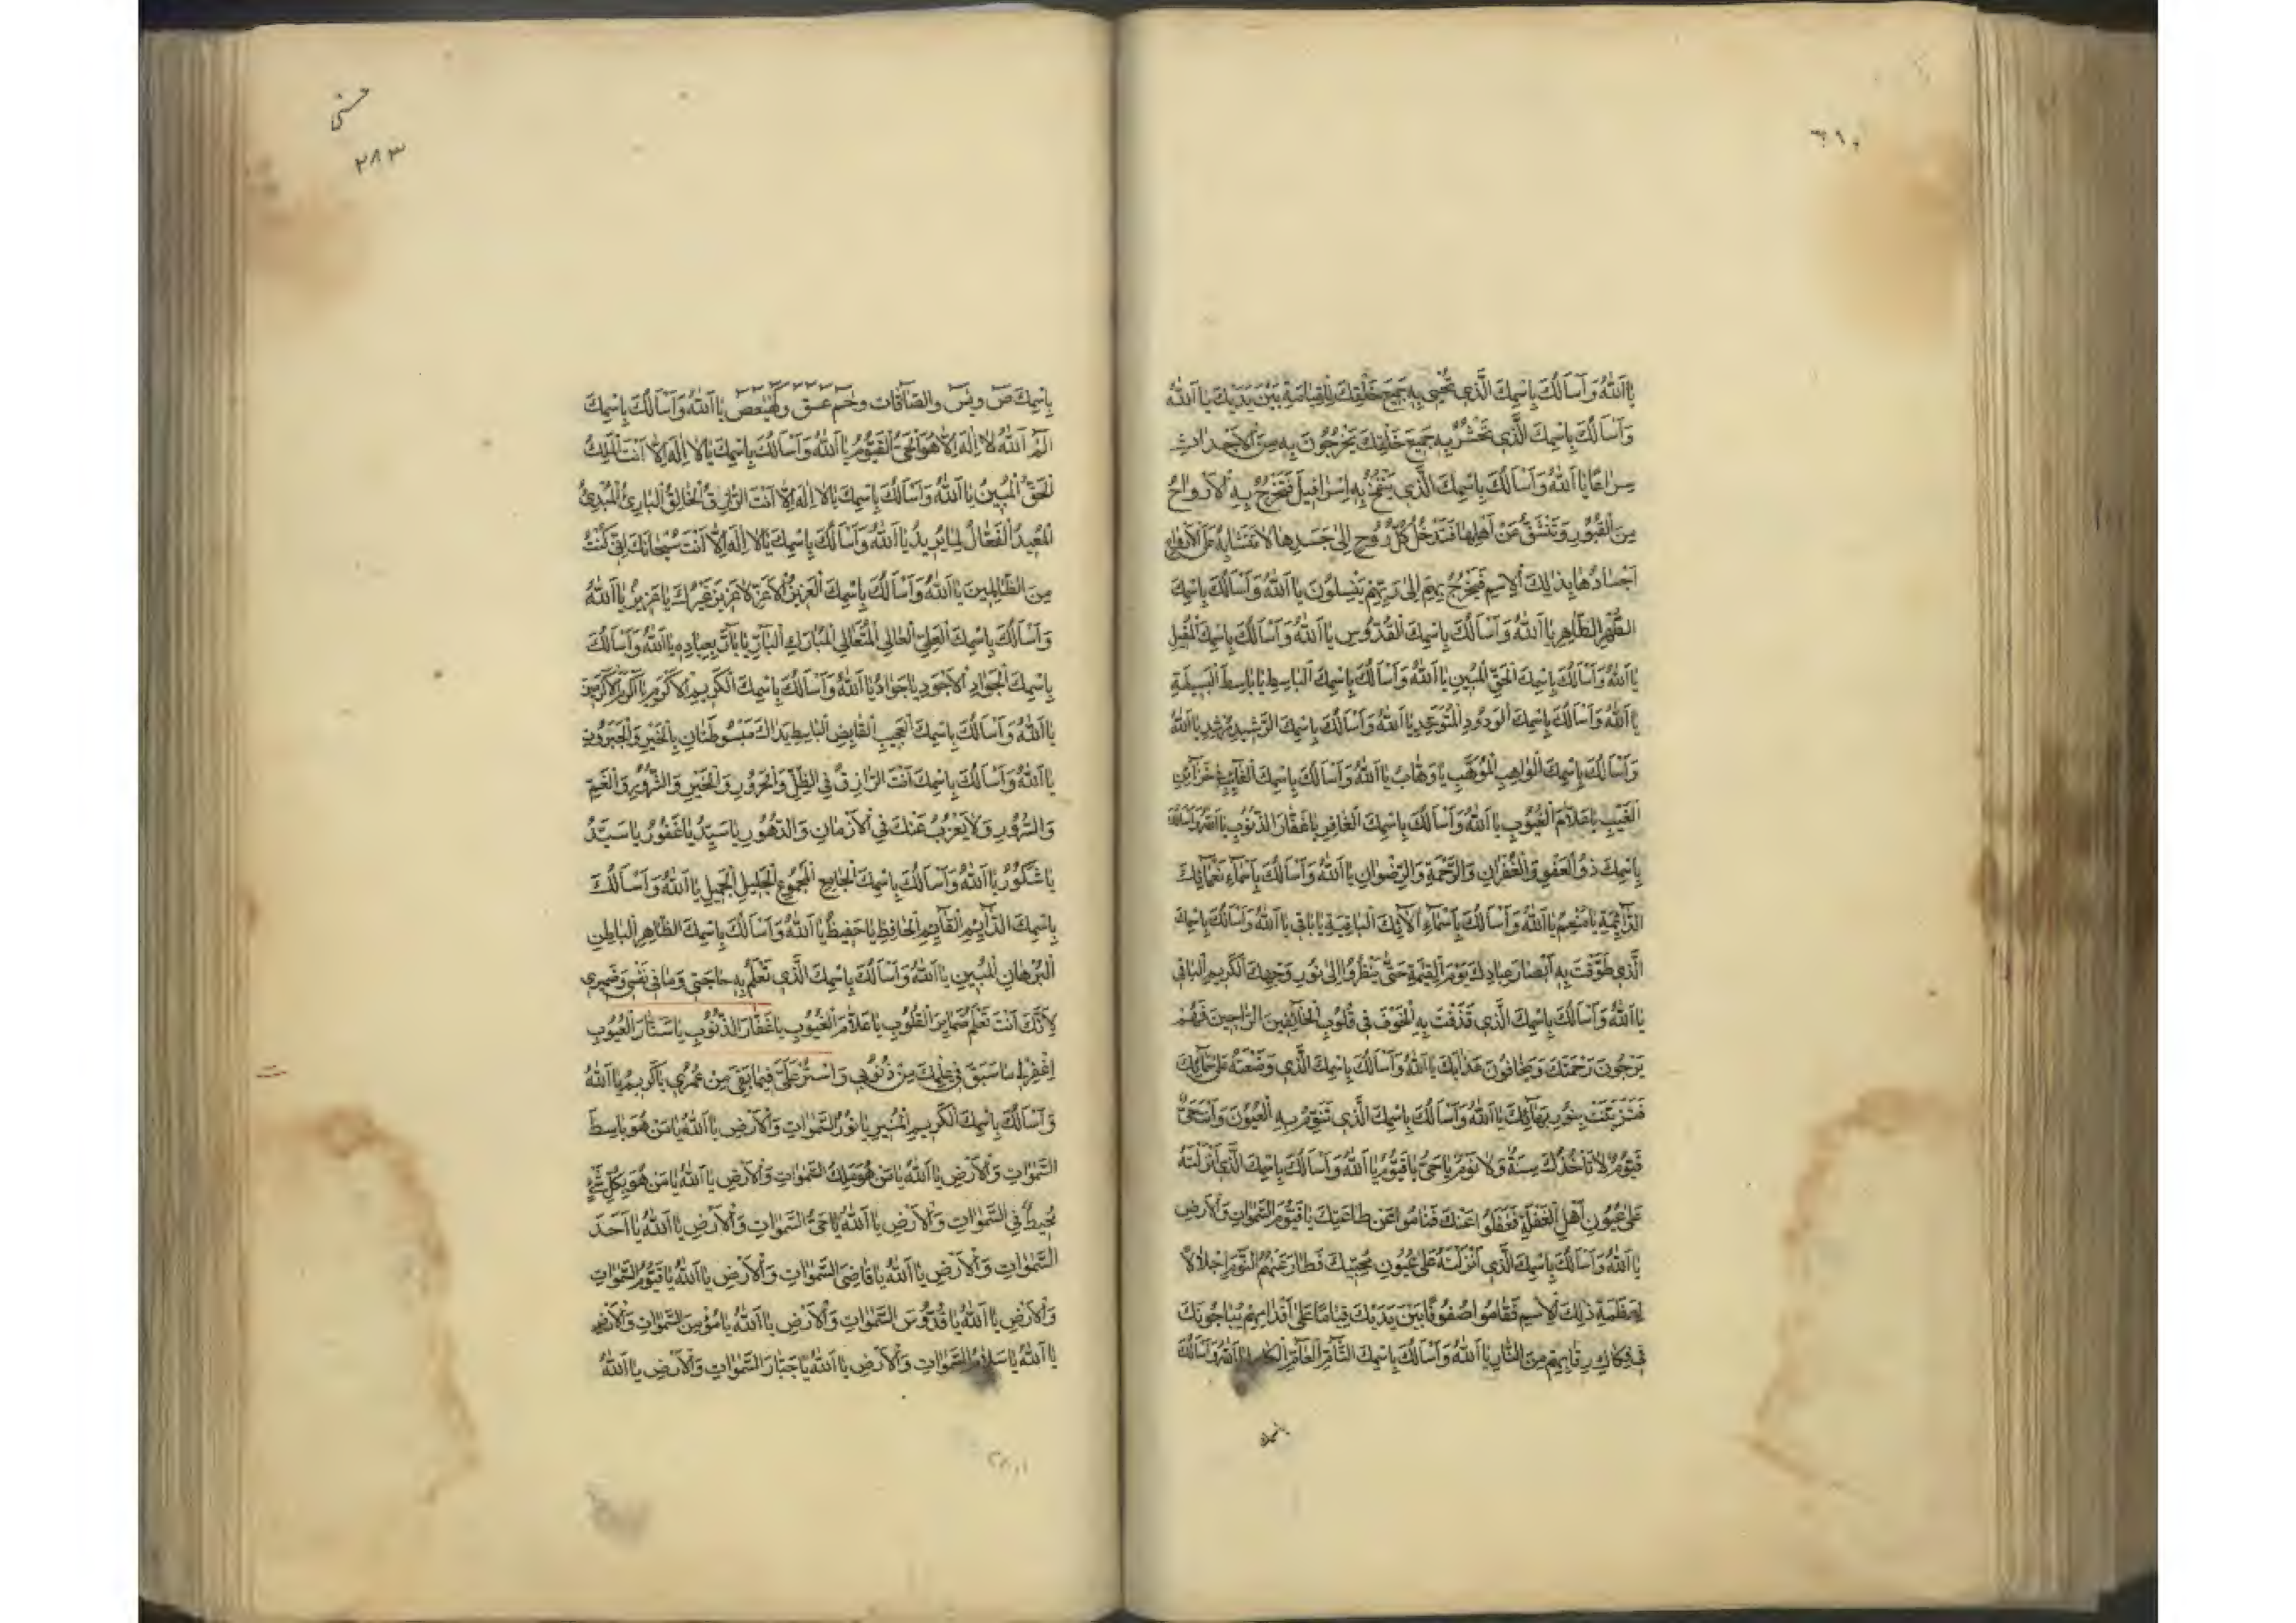 ٦١٠
يَا اَللّٰهُ وَ اَسْأَلُكَ بِاسْمِكَ الَّذي تُحْيي بِهِ جَميعَ خَلْقِكَ لِلْقِيٰامَةِ بَيْنَ يَدَيْكَ يَا اَللّٰهُ
وَ اَسْأَلُكَ بِاسْمِكَ الَّذي تَحْشُرُ بِهِ جَميعَ خَلْقِكَ يَخْرُجُونَ بِهِ مِنَ الْاَجْداثِ
سِراعًا يَا اَللّٰهُ وَ اَسْأَلُكَ بِاسْمِكَ الَّذي يَنْفُخُ بِهِ اِسْرافيلُ فَتَخْرُجُ بِهِ الْاَرْواحُ
مِنَ الْقُبُورِ وَ تَنْشَقُّ عَنْ اَهْلِها فَتَدْخُلُ كُلُّ رُوحٍ اِلى جَسَدِها لا تَتَشابَهُ عَلَى الْاَرْواحِ
اَجْسادُها بِذٰلِكَ الْاِسْمِ فَيَخْرُجُ بِهِمْ اِلى رَبِّهِمْ يَنْسِلُونَ يَا اَللّٰهُ وَ اَسْأَلُكَ بِاسْمِكَ
الطُّهْرِ الطّاهِرِ يَا اَللّٰهُ وَ اَسْأَلُكَ بِاسْمِكَ الْقُدُّوسِ يَا اَللّٰهُ وَ اَسْأَلُكَ بِاسْمِكَ
يَا اَللّٰهُ وَ اَسْأَلُكَ بِاسْمِكَ الْحَقِّ الْمُبينِ يَا اَللّٰهُ وَ اَسْأَلُكَ بِاسْمِكَ الْباسِطِ يا باسِطَ الْبَسيطَةِ
يَا اَللّٰهُ وَ اَسْأَلُكَ بِاسْمِكَ الْوَدُودِ الْمُتَوَحِّدِ يَا اَللّٰهُ وَ اَسْأَلُكَ بِاسْمِكَ الرَّشيدِ مُرْشِدِ يَا اَللّٰهُ
وَ اَسْأَلُكَ بِاسْمِكَ الْواهِبِ الْمُوَهِّبِ يا وَهّابُ يَا اَللّٰهُ وَ اَسْأَلُكَ بِاسْمِكَ الْغائِبِ في خَزائِنِ
الْغَيْبِ يا عَلّامَ الْغُيُوبِ يَا اَللّٰهُ وَ اَسْأَلُكَ بِاسْمِكَ الْغافِرِ يا غَفّارَ الذُّنُوبِ يَا اَللّٰهُ وَ اَسْأَلُكَ
بِاسْمِكَ ذُو الْعَفْوِ وَ الْغُفْرانِ وَ الرَّحْمَةِ وَ الرِّضْوانِ يَا اَللّٰهُ وَ اَسْأَلُكَ بِاَسْماءِ نَعْمائِكَ
الدّائِمَةِ يا مُنْعِمُ يَا اَللّٰهُ وَ اَسْأَلُكَ بِاَسْماءِ الٓائِكَ الْباقِيَةِ يا باقي يَا اَللّٰهُ وَ اَسْأَلُكَ بِاسْمِكَ
الَّذي طَوَّقْتَ بِهِ اَبْصارَ عِبادِكَ يَوْمَ الْقِيٰمَةِ حَتّى يَنْظُرُوا اِلى نُورِ وَجْهِكَ الْكَريمِ الْباقي
يَا اَللّٰهُ وَ اَسْأَلُكَ بِاسْمِكَ الَّذي قَذَفْتَ بِهِ الْخَوْفَ في قُلُوبِ الْخائِفينَ الرّاجينَ فَهُمْ
يَرْجُونَ رَحْمَتَكَ وَ يَخافُونَ عَذابَكَ يَا اَللّٰهُ وَ اَسْأَلُكَ بِاسْمِكَ الَّذي وَضَعْتَهُ عَلى
فَتَزَيَّنَتْ بِنُورِ بَهائِكَ يَا اَللّٰهُ وَ اَسْأَلُكَ بِاسْمِكَ الَّذي تُنَوِّمُ بِهِ الْعُيُونَ وَ اَنْتَ حَيٌّ
قَيُّومٌ لا تَأْخُذُكَ سِنَةٌ وَ لا نَوْمٌ يا حَيُّ يا قَيُّومُ يَا اَللّٰهُ وَ اَسْأَلُكَ بِاسْمِكَ الَّذي اَنْزَلْتَهُ
عَلى عُيُونِ اَهْلِ الْغَفْلَةِ فَغَفَلُوا عَنْكَ فَنامُوا عَنْ طاعَتِكَ يا قَيُّومَ السَّمٰواتِ وَ الْاَرْضِ
يَا اَللّٰهُ وَ اَسْأَلُكَ بِاسْمِكَ الَّذي اَنْزَلْتَهُ عَلى عُيُونِ مُحِبّيكَ فَطارَ عَنْهُمُ النَّوْمُ اِجْلالًا
لِعَظَمَةِ ذٰلِكَ الْاِسْمِ فَقامُوا صُفُوفًا بَيْنَ يَدَيْكَ قِيامًا عَلى اَقْدامِهِمْ يُناجُونَكَ
في فِكاكِ رِقابِهِمْ مِنَ النّارِ يَا اَللّٰهُ وَ اَسْأَلُكَ بِاسْمِكَ التّامِّ الْعامِّ الْكامِلِ يَا اَللّٰهُ وَ اَسْأَلُكَ
باسمك
٣٨٣
بِاسْمِكَ صٓ وَ يٰسٓ وَ الصّافّاتِ وَ حٰمٓ عٓسٓقٓ وَ كٓهٰيٰعٓصٓ يَا اَللّٰهُ وَ اَسْأَلُكَ بِاسْمِكَ
الٓمٓ اَللّٰهُ لا اِلٰهَ اِلّا هُوَ الْحَيُّ الْقَيُّومُ يَا اَللّٰهُ وَ اَسْأَلُكَ بِاسْمِكَ يا لا اِلٰهَ اِلّا اَنْتَ الْمَلِكُ
الْحَقُّ الْمُبينُ يَا اَللّٰهُ وَ اَسْأَلُكَ بِاسْمِكَ يا لا اِلٰهَ اِلّا اَنْتَ الرّازِقُ الْخالِقُ الْبارِئُ الْمُبْدِئُ
الْمُعيدُ الْفَعّالُ لِما يُريدُ يَا اَللّٰهُ وَ اَسْأَلُكَ بِاسْمِكَ يا لا اِلٰهَ اِلّا اَنْتَ سُبْحانَكَ اِنّي كُنْتُ
مِنَ الظّالِمينَ يَا اَللّٰهُ وَ اَسْأَلُكَ بِاسْمِكَ الْعَزيزِ الْاَعَزِّ لا عَزيزَ غَيْرُكَ يا عَزيزُ يَا اَللّٰهُ
وَ اَسْأَلُكَ بِاسْمِكَ الْعَلِيِّ الْعالي الْمُتَعالي الْمُبارَكِ الْبارِّ يا بارُّ بِعِبادِهِ يَا اَللّٰهُ وَ اَسْأَلُكَ
بِاسْمِكَ الْجَوادِ الْاَجْوَدِ يا جَوادُ يَا اَللّٰهُ وَ اَسْأَلُكَ بِاسْمِكَ الْكَريمِ الْاَكْرَمِ يا اَكْرَمَ الْاَكْرَمينَ
يَا اَللّٰهُ وَ اَسْأَلُكَ بِاسْمِكَ الْعَجيبِ الْقابِضِ الْباسِطِ يَداكَ مَبْسُوطَتانِ بِالْخَيْرِ وَ الْجَبَرُوتِ
يَا اَللّٰهُ وَ اَسْأَلُكَ بِاسْمِكَ اَنْتَ الرّازِقُ فِي الظِّلِّ وَ الْحَرُورِ وَ الْخَيْرِ وَ الشُّرُورِ وَ الْغَيْمِ
وَ السُّرُورِ وَ لا يَعْزُبُ عَنْكَ فِي الْاَزْمانِ وَ الدُّهُورِ يا سَيِّدُ يا غَفُورُ يا سَيِّدُ
يا شَكُورُ يَا اَللّٰهُ وَ اَسْأَلُكَ بِاسْمِكَ الْجامِعِ الْمَجْمُوعِ الْجَليلِ الْجَميلِ يَا اَللّٰهُ وَ اَسْأَلُكَ
بِاسْمِكَ الدّائِمِ الْقائِمِ الْحافِظِ يا حَفيظُ يَا اَللّٰهُ وَ اَسْأَلُكَ بِاسْمِكَ الظّاهِرِ الْباطِنِ
الْبُرْهانِ الْمُبينِ يَا اَللّٰهُ وَ اَسْأَلُكَ بِاسْمِكَ الَّذي تَعْلَمُ بِهِ حاجَتي وَ ما في نَفْسي وَ ضَميري
لِاَنَّكَ اَنْتَ تَعْلَمُ ضَمايِرَ الْقُلُوبِ يا عَلّامَ الْغُيُوبِ يا غَفّارَ الذُّنُوبِ يا سَتّارَ الْعُيُوبِ
اِغْفِرْ لي ما سَبَقَ في عِلْمِكَ مِنْ ذُنُوبي وَ اسْتُرْ عَلَيَّ فيما بَقِيَ مِنْ عُمُري يا كَريمُ يَا اَللّٰهُ
وَ اَسْأَلُكَ بِاسْمِكَ الْكَريمِ الْمُنيرِ يا نُورَ السَّمٰواتِ وَ الْاَرْضِ يَا اَللّٰهُ يا مَنْ هُوَ باسِطُ
السَّمٰواتِ وَ الْاَرْضِ يَا اَللّٰهُ يا مَنْ هُوَ مَلِكُ السَّمٰواتِ وَ الْاَرْضِ يَا اَللّٰهُ يا مَنْ هُوَ بِكُلِّ شَيْءٍ
مُحيطٌ فِي السَّمٰواتِ وَ الْاَرْضِ يَا اَللّٰهُ يا حَيُّ السَّمٰواتِ وَ الْاَرْضِ يَا اَللّٰهُ يا اَحَدَ
السَّمٰواتِ وَ الْاَرْضِ يَا اَللّٰهُ يا قاضِيَ السَّمٰواتِ وَ الْاَرْضِ يَا اَللّٰهُ يا قَيُّومَ السَّمٰواتِ
وَ الْاَرْضِ يَا اَللّٰهُ يا قُدُّوسَ السَّمٰواتِ وَ الْاَرْضِ يَا اَللّٰهُ يا مُؤْمِنَ السَّمٰواتِ وَ الْاَرْضِ
يَا اَللّٰهُ يا سَلامَ السَّمٰواتِ وَ الْاَرْضِ يَا اَللّٰهُ يا جَبّارَ السَّمٰواتِ وَ الْاَرْضِ يَا اَللّٰهُ